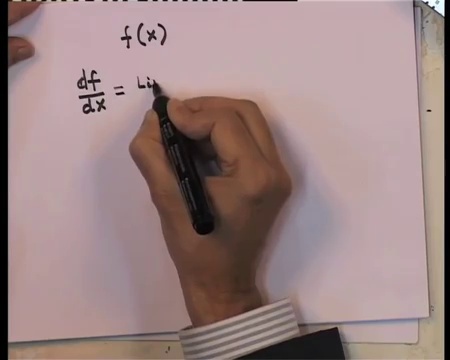 f(x)
df/dx = Li